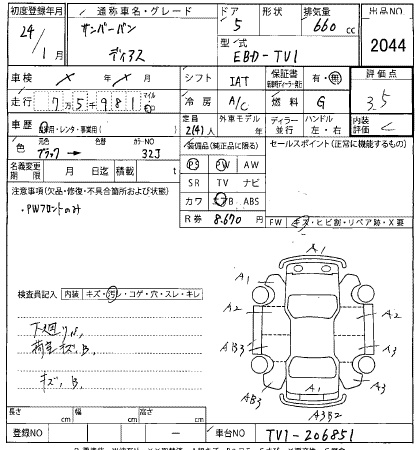 初度登録年月 通称車名・グレード ドア 形状 排気量 出品NO
24/1月 サンバーバン ディアス 5 660cc 2044
型式 EBD-TV1
車検 シフト IAT 保証書 有・無 評価点
走行 7万5千981 マイル 冷房 A/C 燃料 G 3.5
車歴 自家用・レンタ・事業用( ) 定員 2(4)人 外車モデル 年 ディーラー 並行 ハンドル 左・右 内装評価 C
色 元色 色替 カラーNO
ブラック→ 32J
装備品(純正品に限る) セールスポイント(正常に機能するもの)
名義変更期限 月 日迄 積載 t
PS PW AW
SR TV ナビ
カワ エアB ABS
R券 8,670円
注意事項(欠品・修復・不具合箇所および状態)
・PWフロントのみ
FW キズ・ヒビ割・リペア跡・X要
検査員記入 内装 キズ・汚レ・コゲ・穴・スレ・キレ
下廻りS,
荷室キズ,B,
キズ,B
A1
A1 A1
A2 A2
AB3 A3
A3 A1 AB3
A3B2
長さ cm 幅 cm 高さ cm
登録NO － 車台NO TV1-206851